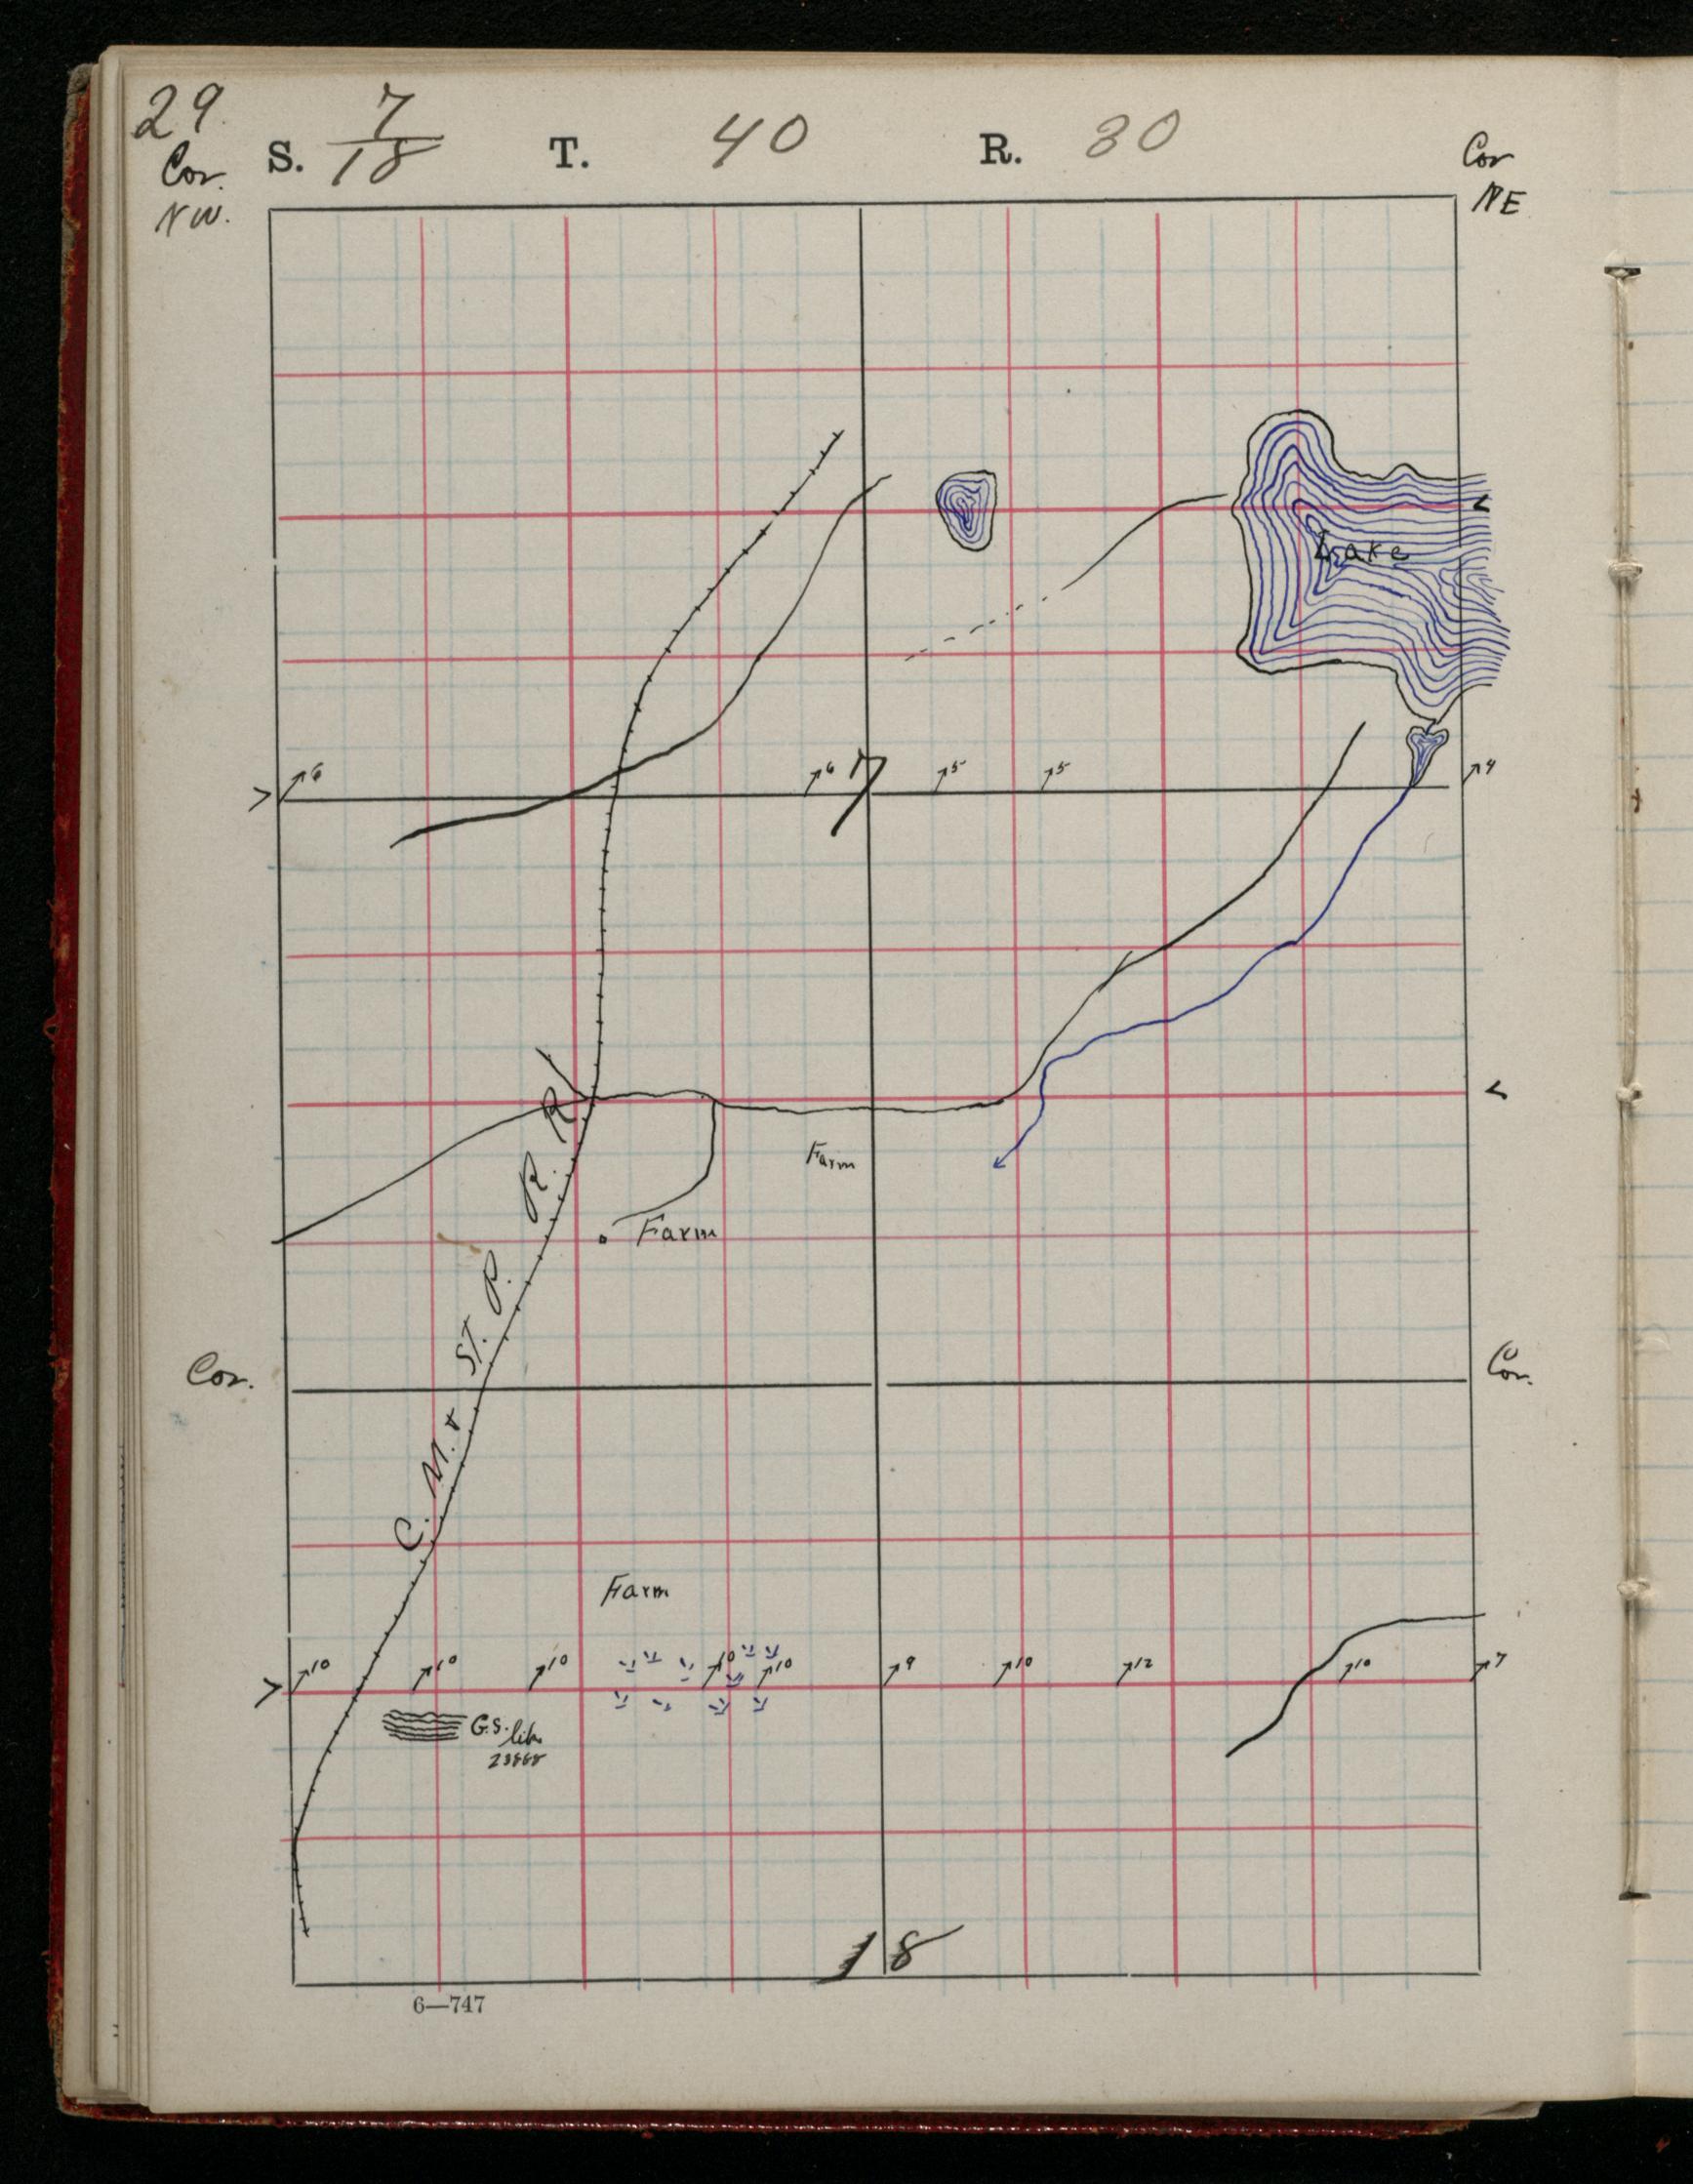 29.
Cor. S. 7/18 T. 40 R. 30 Cor
NW. NE
Lake
6 6 7 5 5 4
C. M. & ST. P. R. R.
Farm
Farm
Cor. Cor.
Farm
10 10 10 10 10 9 10 12 10 7
G.S. like
23868
18
6—747